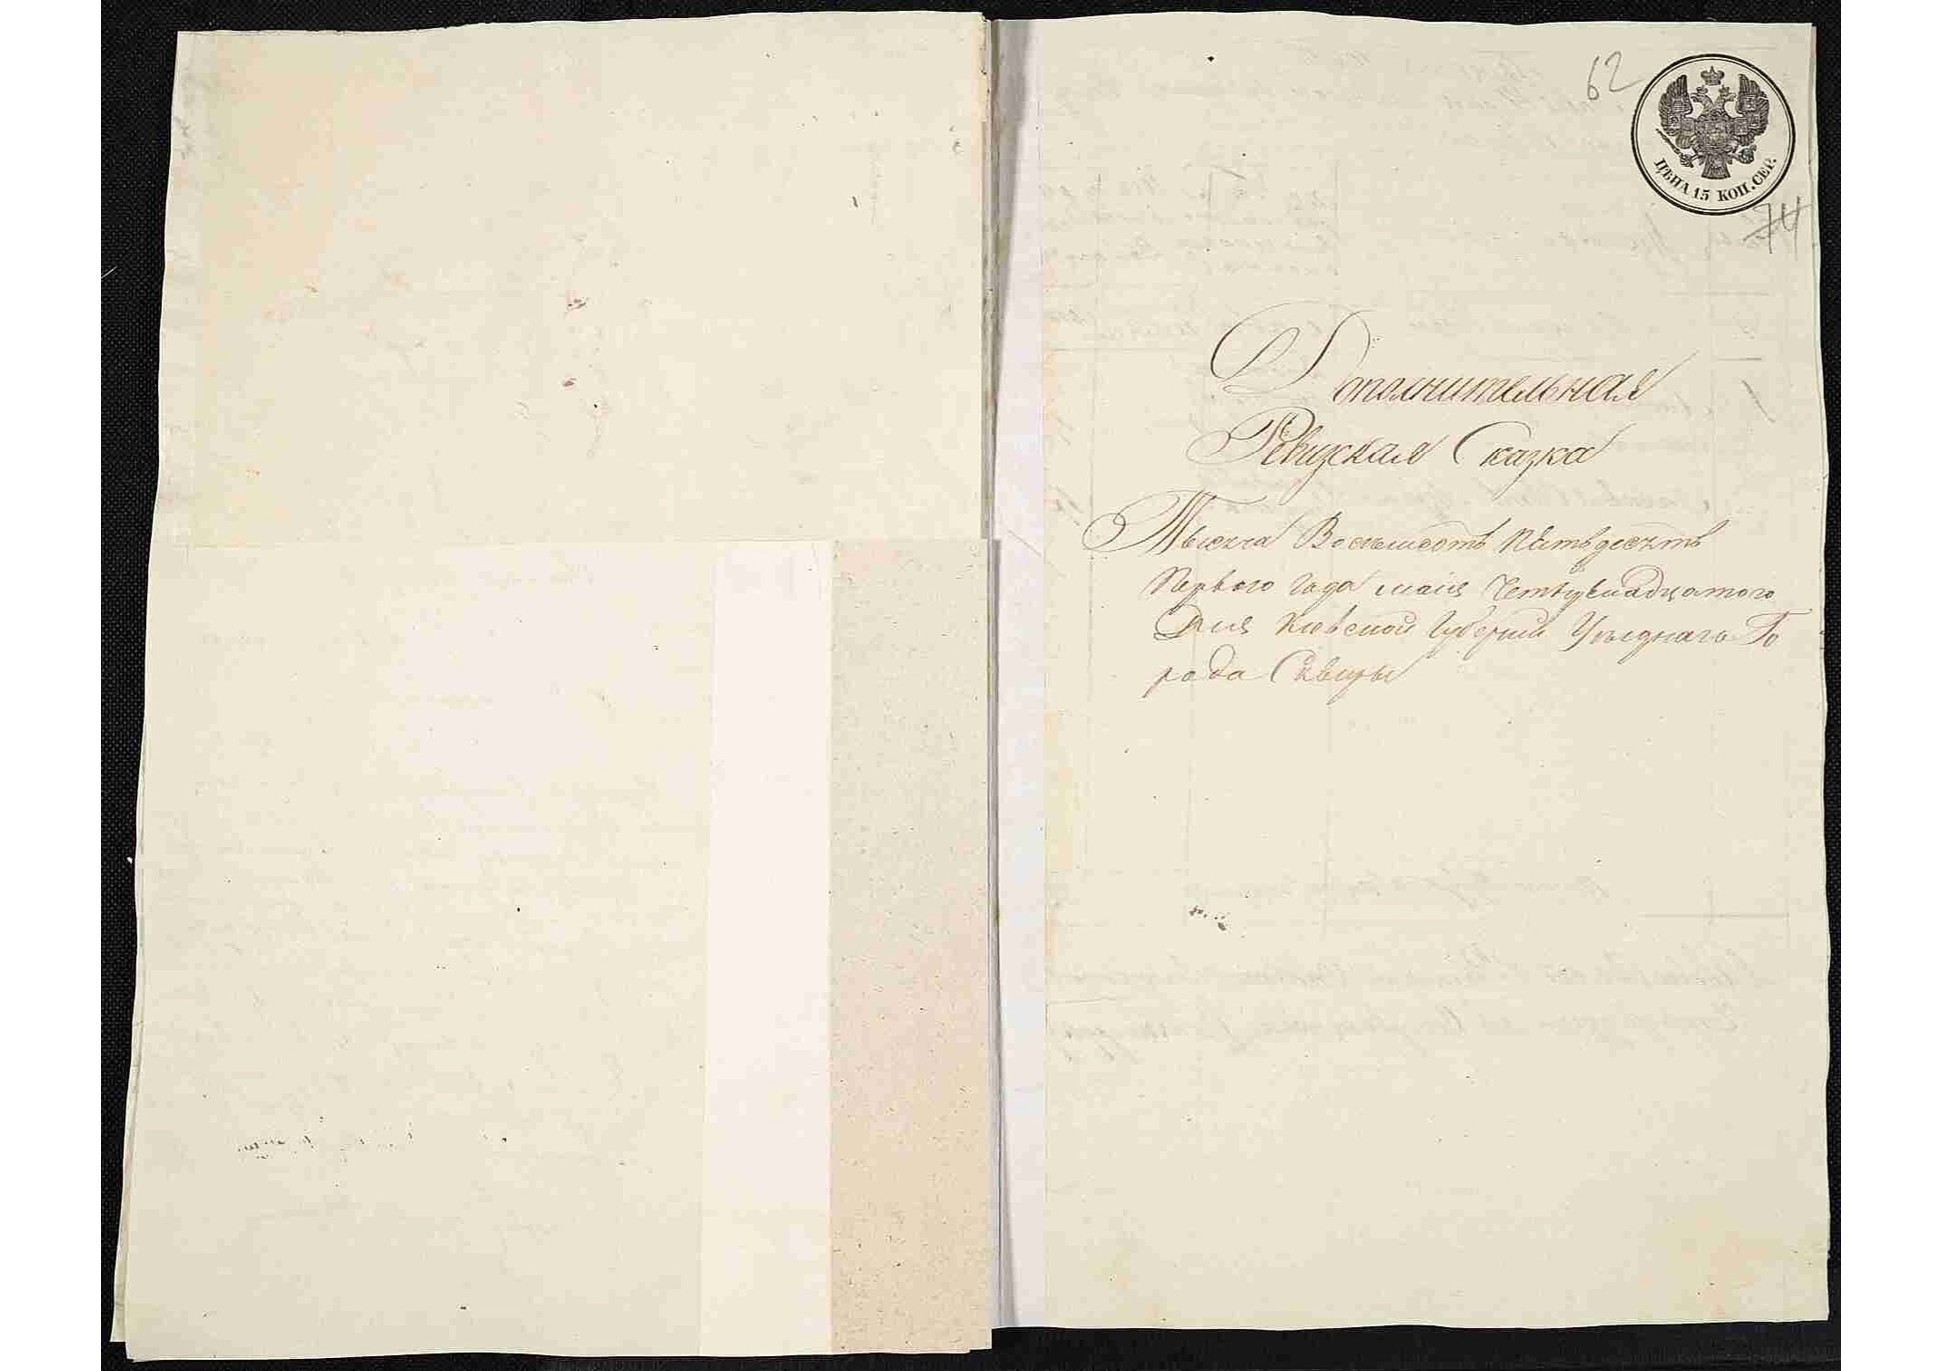 62
ЦѢНА 15 КОП. СЕР.
74
Дополнительная
Ревизская Сказка
Тысяча Восемьсотъ Пятьдесятъ
Первого Года маія Четырнадцатого
Дня Кіевской Губерніи Уѣзднаго Го
рода Сквиры